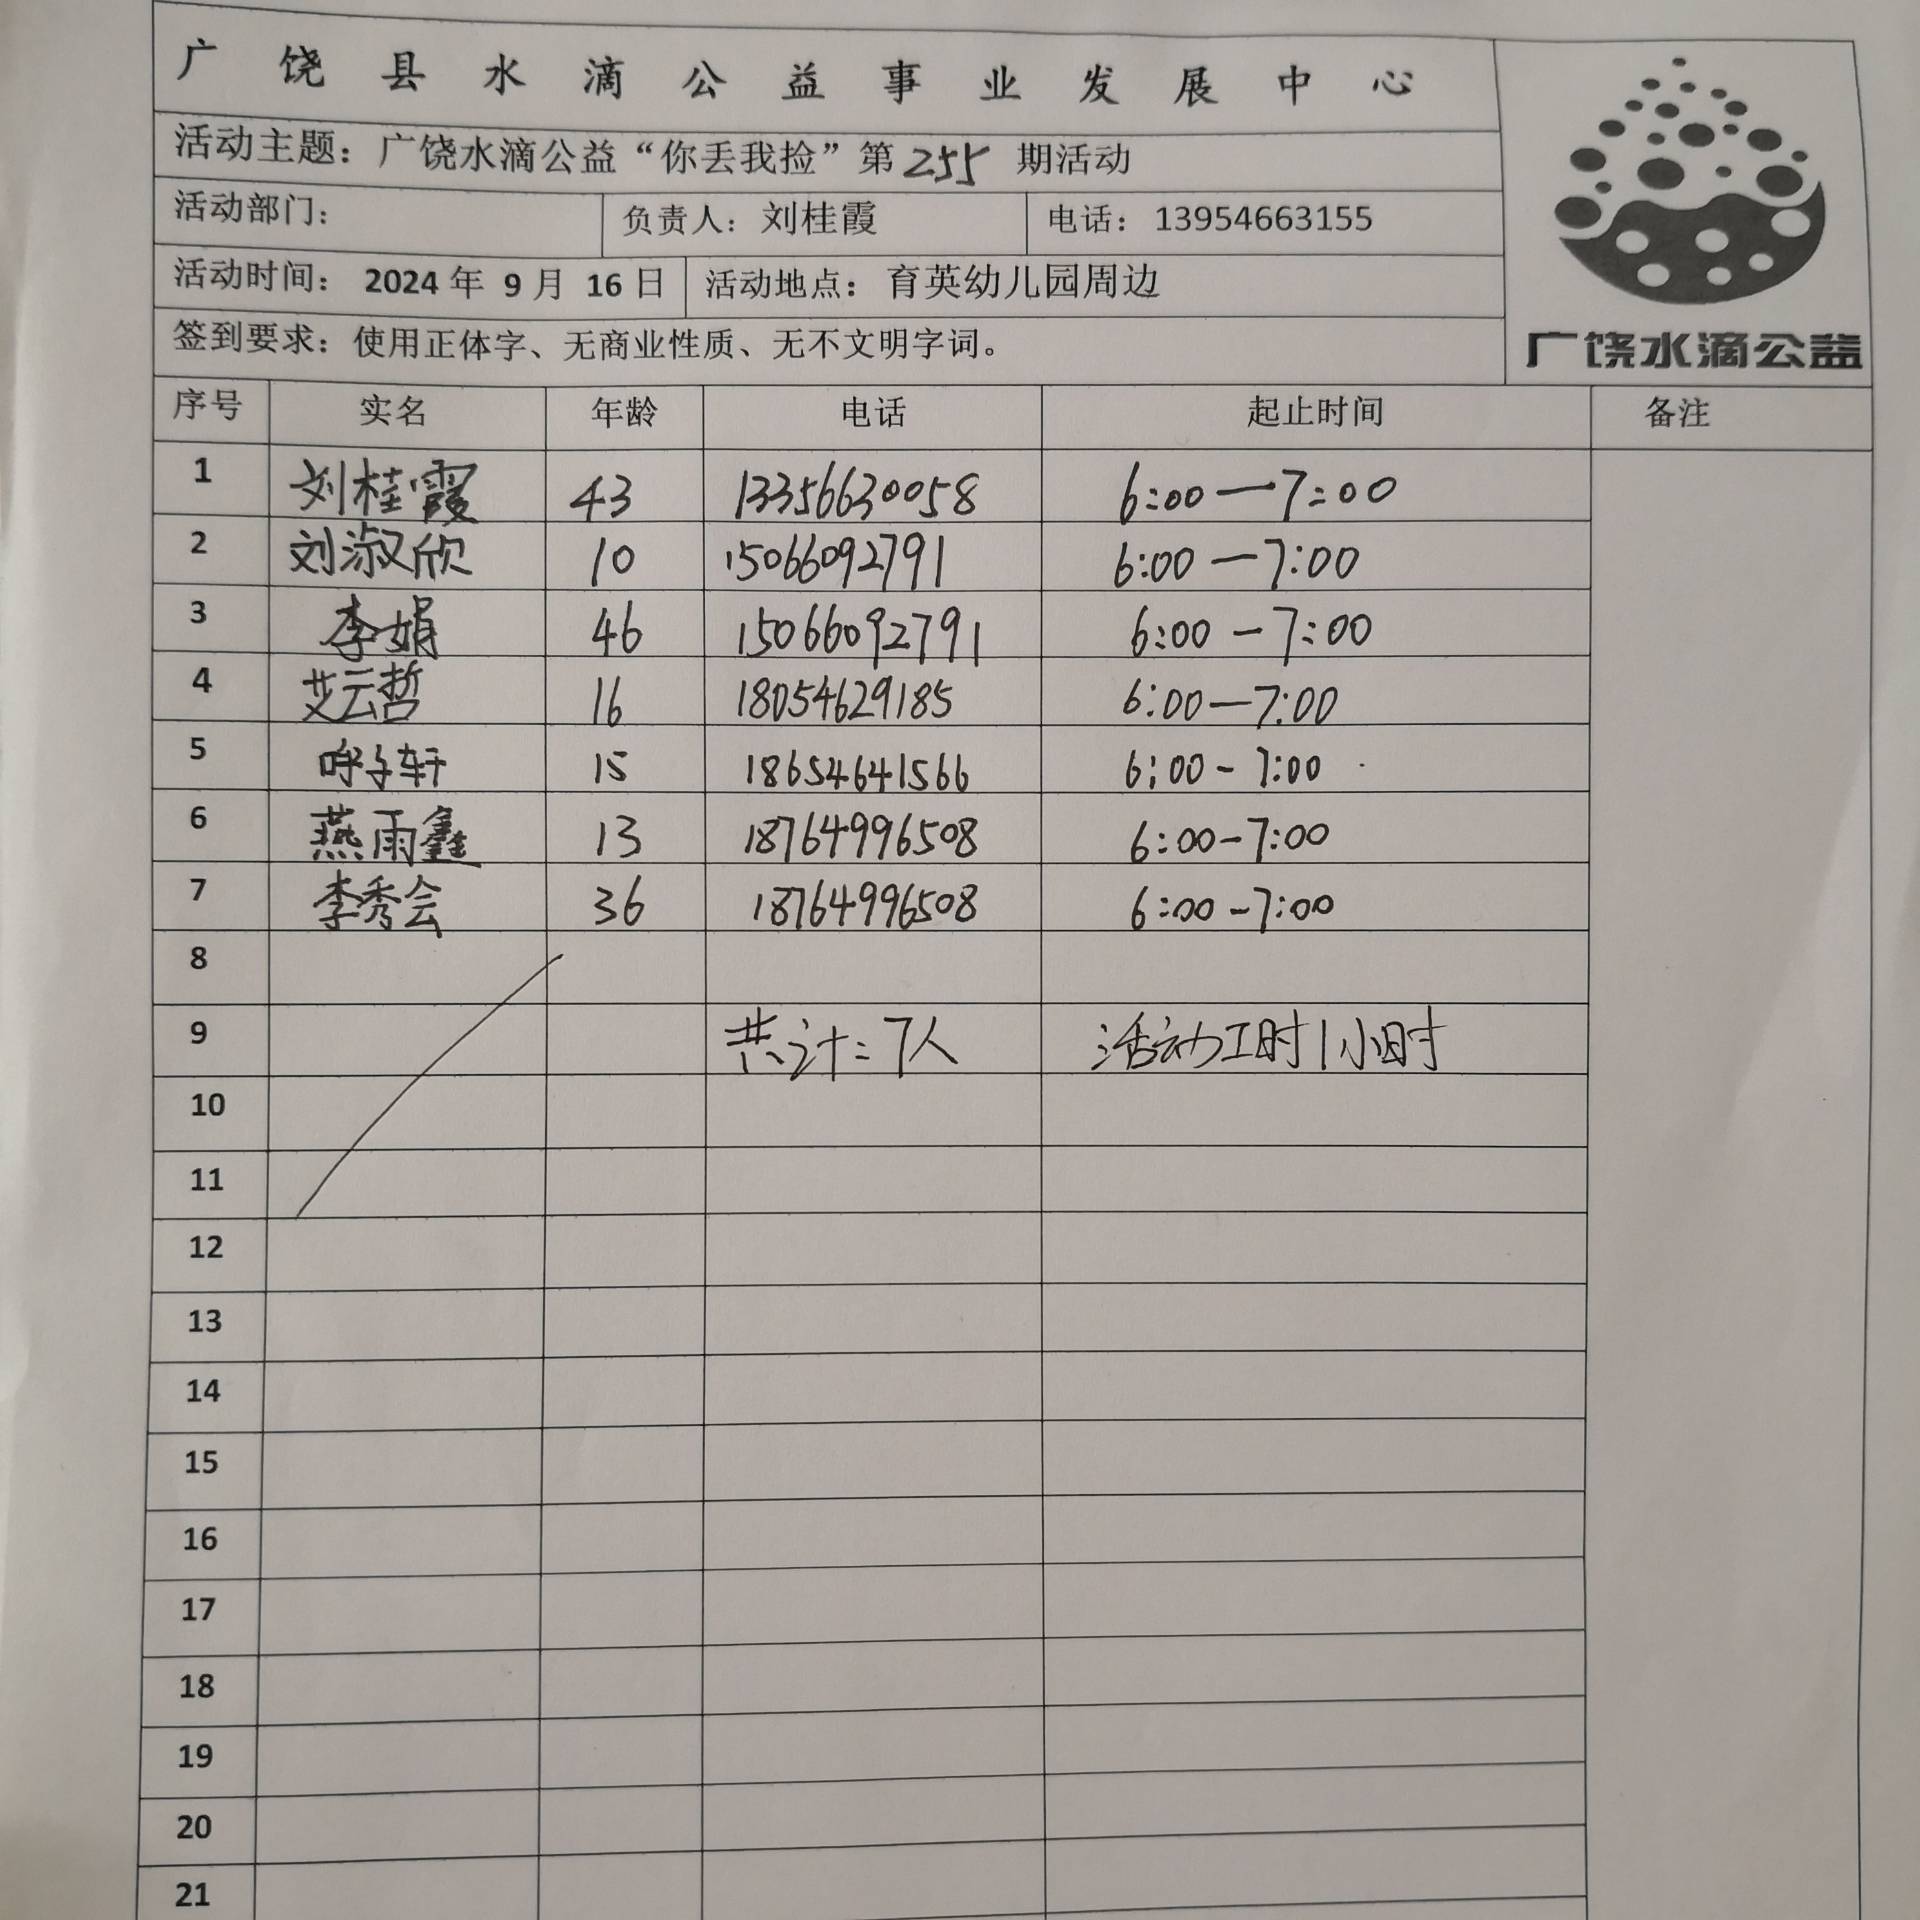 广饶县水滴公益事业发展中心
活动主题：广饶水滴公益“你丢我捡”第255期活动
活动部门： 负责人：刘桂霞 电话：13954663155
活动时间： 2024年 9月 16日 活动地点：育英幼儿园周边
签到要求：使用正体字、无商业性质、无不文明字词。
广饶水滴公益
序号 实名 年龄 电话 起止时间 备注
1 刘桂霞 43 13356630058 6:00—7:00
2 刘淑欣 10 15066092791 6:00—7:00
3 李娟 46 15066092791 6:00—7:00
4 艾云哲 16 18054629185 6:00—7:00
5 呼子轩 15 18654641566 6:00-7:00
6 燕雨鑫 13 18764996508 6:00-7:00
7 李秀会 36 18764996508 6:00-7:00
8
9 共计:7人 活动工时1小时
10
11
12
13
14
15
16
17
18
19
20
21